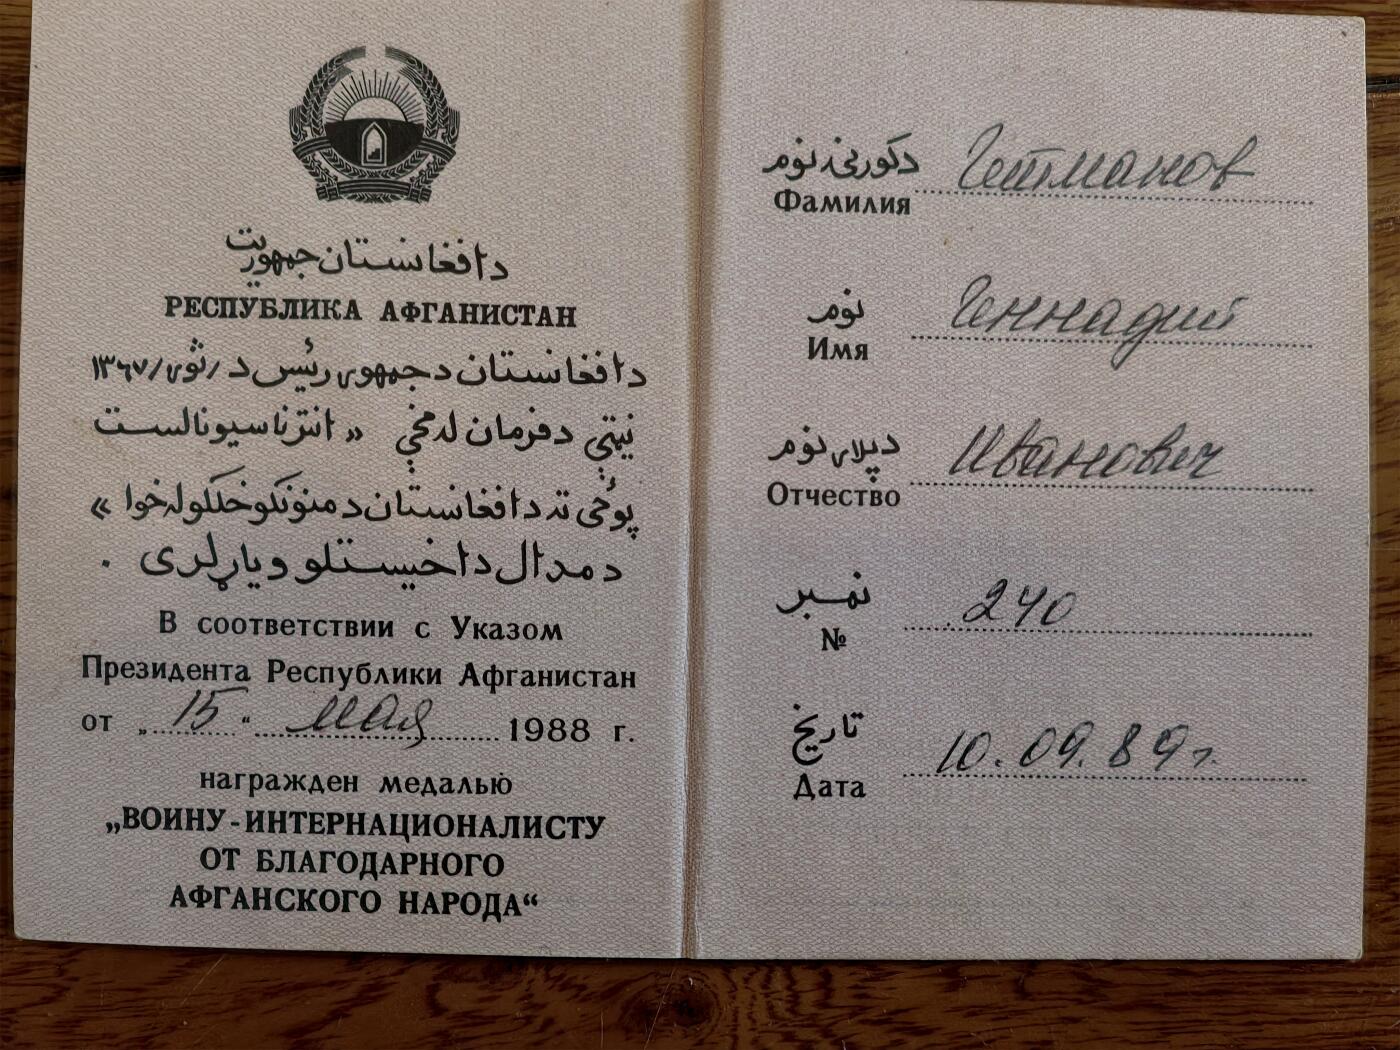 دافغانستان جمهوریت
РЕСПУБЛИКА АФГАНИСТАН
دافغانستان دجمهوری رئیس د / ثوری / ۱۳۶۷
نیټې دفرمان له مخې « انترناسیونالست
پوځی ته دافغانستان دمنونکو خلکو له خوا »
دمدال داخیستلو ویاړلری .
В соответствии с Указом
Президента Республики Афганистан
от „15“ мая 1988 г.
награжден медалью
„ВОИНУ-ИНТЕРНАЦИОНАЛИСТУ
ОТ БЛАГОДАРНОГО
АФГАНСКОГО НАРОДА“
دکورنۍ نوم
Фамилия Гетманов
نوم
Имя Геннадий
دپلار نوم
Отчество Иванович
نمبر
№ 240
تاریخ
Дата 10.09.89г.